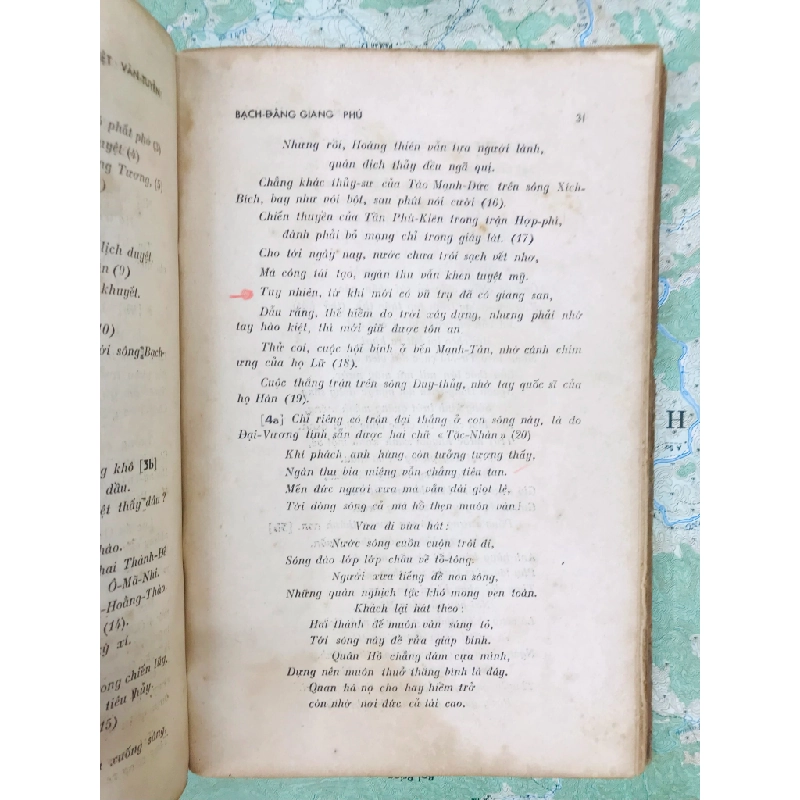 ỆT VĂN-TUYỂN
phất phơ (3)
uyệt (4)
ng Tương, (5
)
lịch duyệt
n (9)
khuyết.
20)
ời sông Bạch-
ng khó [3b]
dầu.
ệt thấy đâu ?
hảo.
hai Thánh-Đế
Ô-Mã-Nhi.
-Hoằng-Thảo
(14).
ỳ xí.
ong chiến lũy,
tiêu thủy.
15)
xuống sông,
BẠCH-ĐẰNG GIANG PHÚ 31
Nhưng rồi, Hoàng thiên vẫn tựa người lành,
quân địch thảy đều ngã quị.
Chẳng khác thủy-sư của Tào Mạnh-Đức trên sông Xích-
Bích, bay như vôi bột, sau phút nói cười (16).
Chiến thuyền của Tần Phù-Kiên trong trận Hợp-phì,
đành phải bỏ mạng chỉ trong giây lát. (17)
Cho tới ngày nay, nước chưa trôi sạch vết nhơ,
Mà công tái tạo, ngàn thu vẫn khen tuyệt mỹ.
Tuy nhiên, từ khi mới có vũ trụ đã có giang san,
Dẫu rằng, thế hiểm do trời xây dựng, nhưng phải nhờ
tay hào kiệt, thì mới giữ được tồn an
Thử coi, cuộc hội binh ở bến Mạnh-Tân, nhờ cánh chim
ưng của họ Lữ (18).
Cuộc thắng trận trên sông Duy-thủy, nhờ tay quốc sĩ của
họ Hàn (19).
[4a] Chỉ riêng có trận đại thắng ở con sông này, là do
Đại-Vương lĩnh sẵn được hai chữ « Tặc-Nhàn » (20)
Khí phách anh hùng còn tưởng tượng thấy,
Ngàn thu bia miệng vẫn chẳng tiêu tan.
Mến đức người xưa mà vẫn dài giọt lệ,
Tới dòng sông cả mà hổ thẹn muôn vàn!
Vừa đi vừa hát:
Nước sông cuồn cuộn trôi đi,
Sóng đào lớp lớp chầu về tổ-tông.
Người xưa tiếng để non sông,
Những quân nghịch tặc khó mong vẹn toàn.
Khách lại hát theo:
Hai thánh để muôn vàn sáng tỏ,
Tới sông này để rửa giáp binh.
Quân Hồ chẳng dám cựa mình,
Dựng nên muôn thuở thăng bình là đây.
Quan hà nọ cho hay hiểm trở
còn nhờ nơi đức cả tài cao.
H